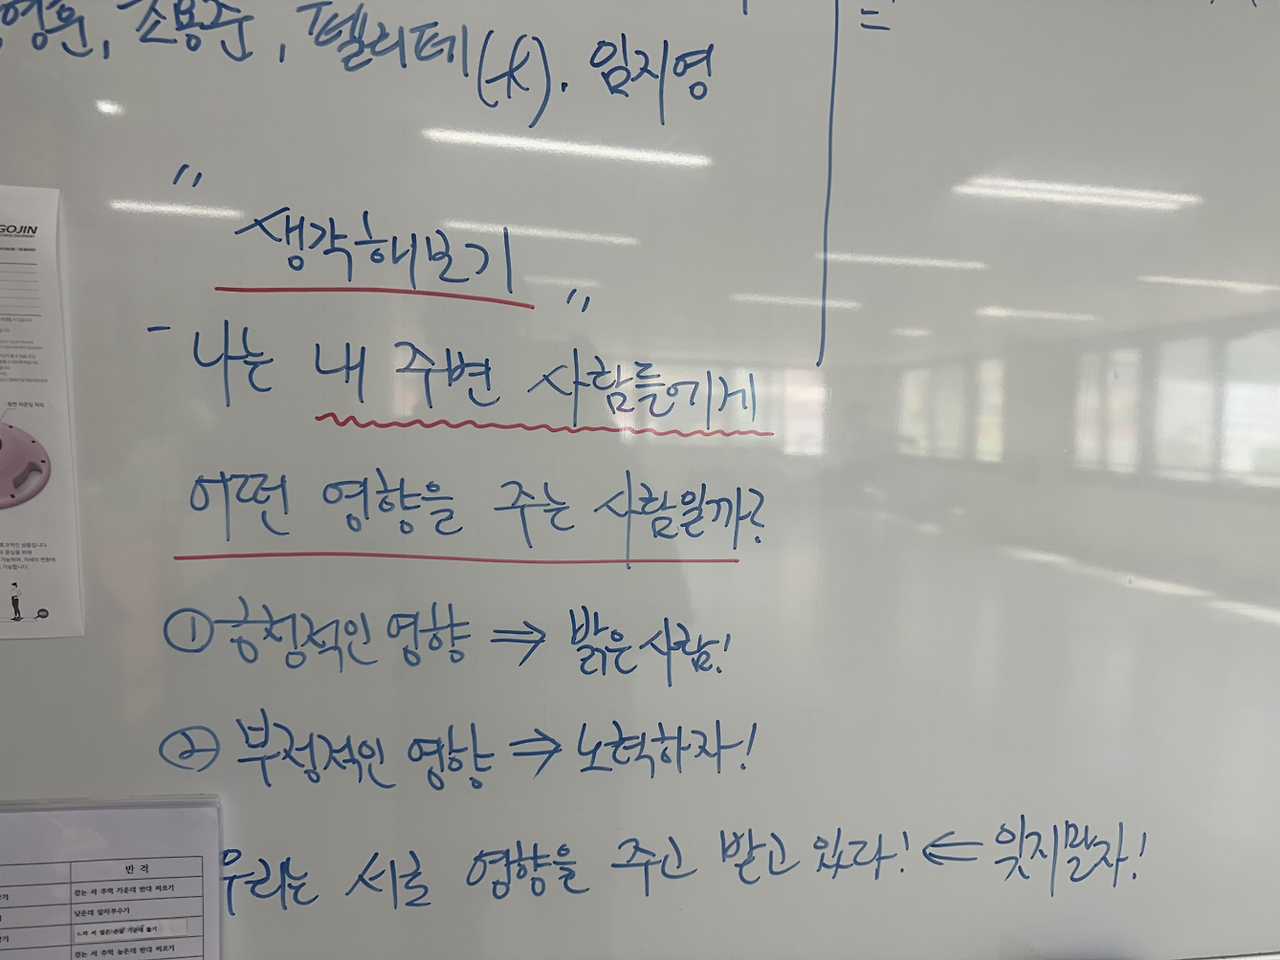 영훈, 조용준, 펠리페(f). 임지영
"생각해보기"
- 나는 내 주변 사람들에게
어떤 영향을 주는 사람일까?
① 긍정적인 영향 ⇒ 밝은 사람!
② 부정적인 영향 ⇒ 노력하자!
우리는 서로 영향을 주고 받고 있다! ⇐ 잊지말자!
GOJIN
반 격
걷는 서 주먹 가운데 반대 찌르기
낮은데 앞차부수기
걷는 서 주먹 높은데 반대 찌르기